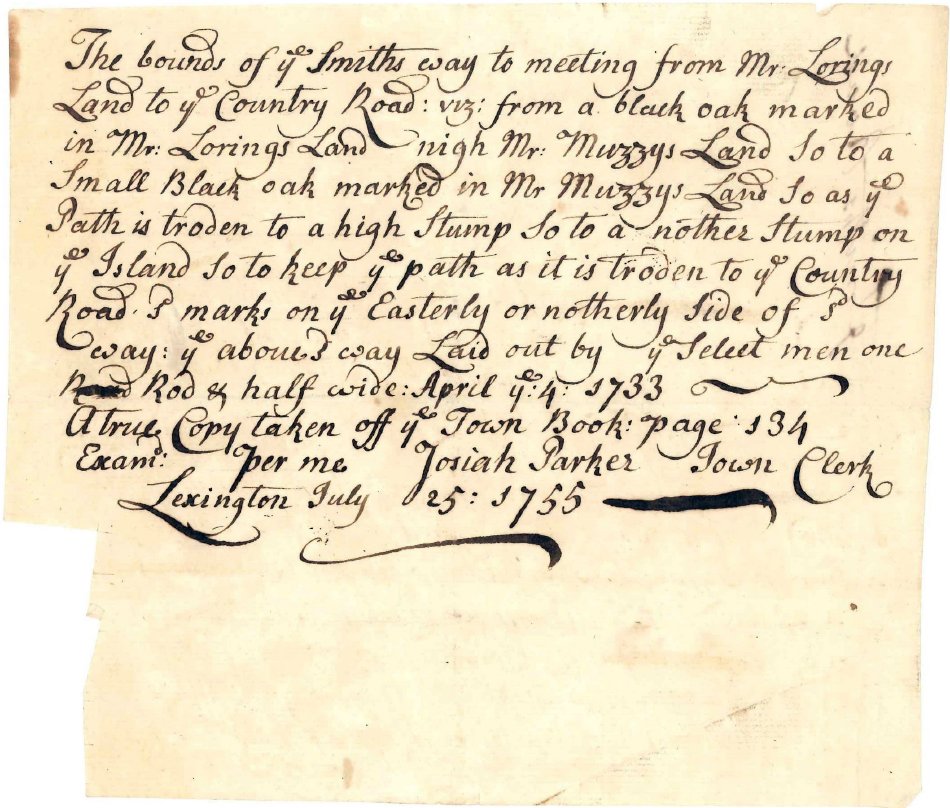 The bounds of ye Smiths way to meeting from Mr: Lorings
Land to ye Country Road: viz: from a black oak marked
in Mr: Lorings Land nigh Mr: Muzzys Land So to a
Small Black oak marked in Mr Muzzys Land So as ye
Path is troden to a high Stump So to a nother Stump on
ye Island So to keep ye path as it is troden to ye Country
Road. sd marks on ye Easterly or notherly Side of sd
way: ye above sd way Laid out by ye Select men one
Rod & half wide: April ye: 4: 1733
A true Copy taken off ye Town Book: page 134
Examd: per me Josiah Parker Town Clerk
Lexington July 25: 1755